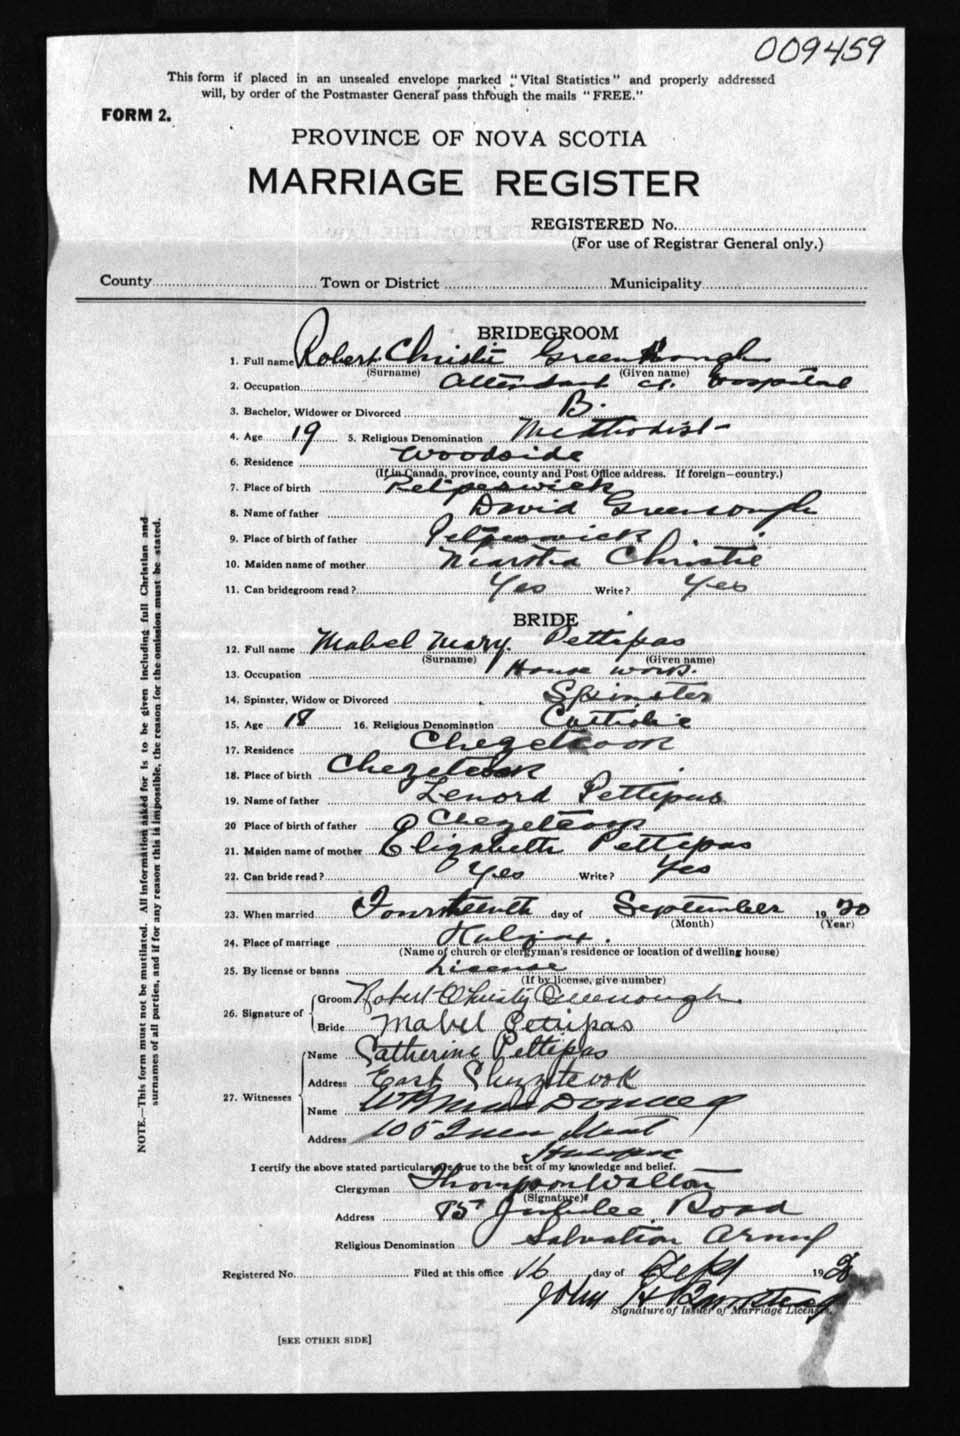 009459
This form if placed in an unsealed envelope marked "Vital Statistics" and properly addressed
will, by order of the Postmaster General pass through the mails "FREE."
FORM 2.
PROVINCE OF NOVA SCOTIA
MARRIAGE REGISTER
REGISTERED No.
(For use of Registrar General only.)
County Town or District Municipality
BRIDEGROOM
1. Full name Robert Christie Greenough
(Surname) (Given name)
2. Occupation Attendant at Hospital
3. Bachelor, Widower or Divorced B.
4. Age 19 5. Religious Denomination Methodist
6. Residence Woodside
(If in Canada, province, county and Post Office address. If foreign—country.)
7. Place of birth Petpeswick
8. Name of father David Greenough
9. Place of birth of father Petpeswick
10. Maiden name of mother Martha Christie
11. Can bridegroom read? Yes Write? Yes
BRIDE
12. Full name Mabel Mary. Pettipas
(Surname) (Given name)
13. Occupation House work.
14. Spinster, Widow or Divorced Spinster
15. Age 18 16. Religious Denomination Catholic
17. Residence Chezetcook
18. Place of birth Chezetcook
19. Name of father Lenord Pettipas
20 Place of birth of father Chezetcook
21. Maiden name of mother Elizabeth Pettipas
22. Can bride read? Yes Write? Yes
23. When married Fourteenth day of September 1920
(Month) (Year)
24. Place of marriage Halifax.
(Name of church or clergyman's residence or location of dwelling house)
25. By license or banns License
(If by license, give number)
26. Signature of Groom Robert Christy Greenough.
Bride Mabel Pettipas
27. Witnesses Name Catherine Pettipas
Address East Chezetcook
Name
Address 105 Street
Halifax
I certify the above stated particulars are true to the best of my knowledge and belief.
Clergyman Thompson Walton
(Signature)
Address 75 Jubilee Road
Religious Denomination Salvation Army
Registered No. Filed at this office 16 day of Sept 1920
John H
Signature of Issuer of Marriage Licenses.
[SEE OTHER SIDE]
NOTE.—This form must not be mutilated. All information asked for is to be given including full Christian and
surnames of all parties, and if for any reason this is impossible, the reason for the omission must be stated.